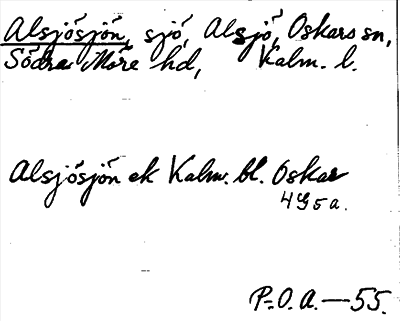 Alsjösjön, sjö, Alsjö, Oskars sn,
Södra Möre hd, Kalm. l.
Alsjösjön ek Kalm. bl. Oskar
4G5a.
P.O.A.—55.